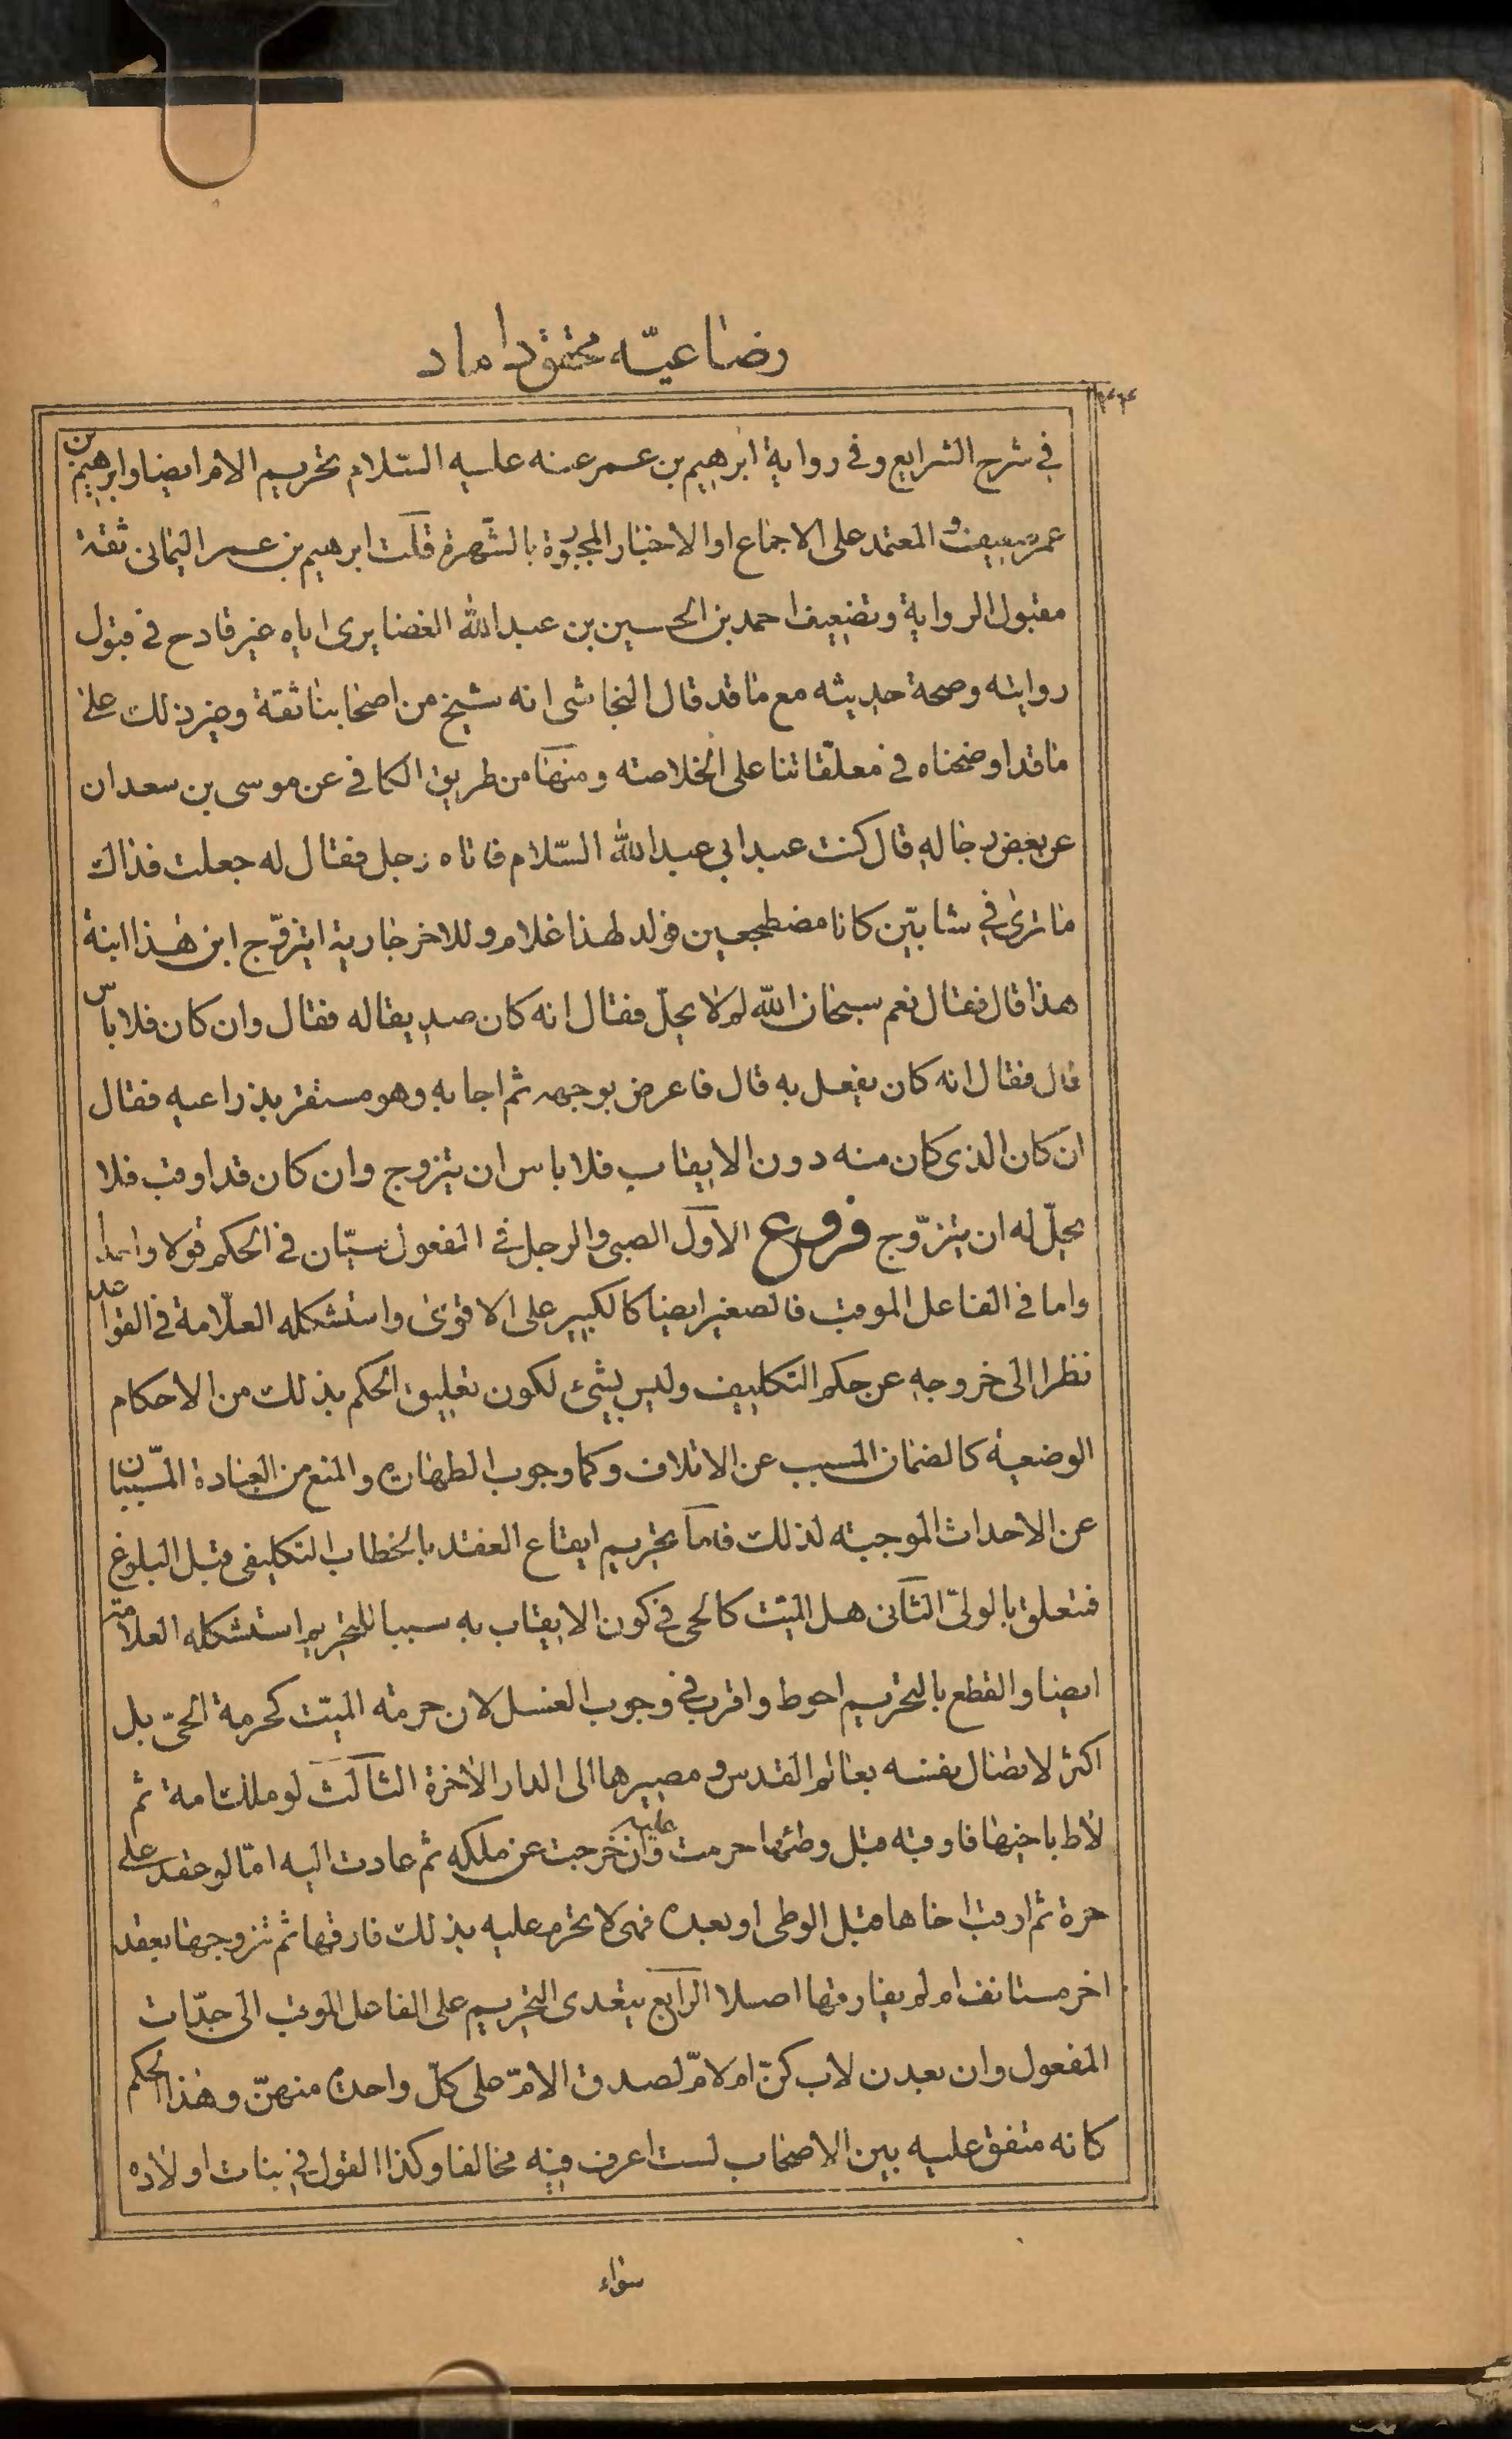 رضاعیّه محقق داماد
في شرح الشرايع وفي رواية ابرهيم بن عمر عنه عليه السّلام تحريم الام ايضا وابرهيم بن
عمر ضعيف والمعتمد على الاجماع او الاخبار المجبورة بالشّهرة قلت ابرهيم بن عمر اليماني ثقة
مقبول الرواية وتضعيف احمد بن الحسين بن عبد الله الغضايرى اياه غير قادح في قبول
روايته وصحة حديثه مع ما قد قال النجاشى انه شيخ من اصحابنا ثقة وغير ذلك على
ما قد اوضحناه في معلّقاتنا على الخلاصته ومنها من طريق الكافي عن موسى بن سعدان
عن بعض رجاله قال كنت عبد ابي عبد الله السّلام فاتاه رجل فقال له جعلت فداك
ما ترى في شابّين كانا مضطجعين فولد لهذا غلام وللاخر جارية ايتزوّج ابن هذا ابنة
هذا قال فقال نعم سبحان الله لم لا يحلّ فقال انه كان صديقا له فقال وان كان فلا باس
قال فقال انه كان يفعل به قال فاعرض بوجهه ثم اجابه وهو مستقر بذراعيه فقال
ان كان الذى كان منه دون الايقاب فلا باس ان يتزوج وان كان قد اوقب فلا
يحلّ له ان يتزوّج فروع الاوّل الصبى والرجل في المفعول سيّان في الحكم قولا واحدا
واما في الفاعل الموقب فالصغير ايضا كالكبير على الاقوى واستشكله العلّامة في القواعد
نظرا الى خروجه عن حكم التكليف وليس بشئ لكون تعليق الحكم بذلك من الاحكام
الوضعية كالضمان المسبب عن الاتلاف وكما وجوب الطهارة والمنع من العبادة المسّببان
عن الاحداث الموجبته لذلك فاما تحريم ايقاع العقد بالخطاب التكليفى قبل البلوغ
فتعلق بالولىّ الثاني هل الميّت كالحى في كون الايقاب به سببا للتحريم استشكله العلامة
ايضا والقطع بالتحريم احوط واقرب في وجوب الغسل لان حرمته الميّت كحرمة الحىّ بل
اكثر لاتصال نفسه بعالم القدس ومصيرها الى الدار الاخرة الثالث لو ملك امة ثم
لاط باخيها فاوقبه قبل وطئها حرمت عليه وان خرجت عن ملكه ثم عادت اليه امّا لو عقد على
حرة ثم اوقب اخاها قبل الوطى او بعده فهى لا تحرم عليه بذلك فارقها ثم تزوجها بعقد
اخر مستانف ام لم يفارقها اصلا الرابع يتعدى التحريم على الفاعل الموقب الى جدّات
المفعول وان بعدن لاب كنّ ام لامّ لصدق الامّ على كلّ واحدة منهنّ وهذا الحكم
كانه متفق عليه بين الاصحاب لست اعرف فيه مخالفا وكذا القول في بنات اولاده
سواء